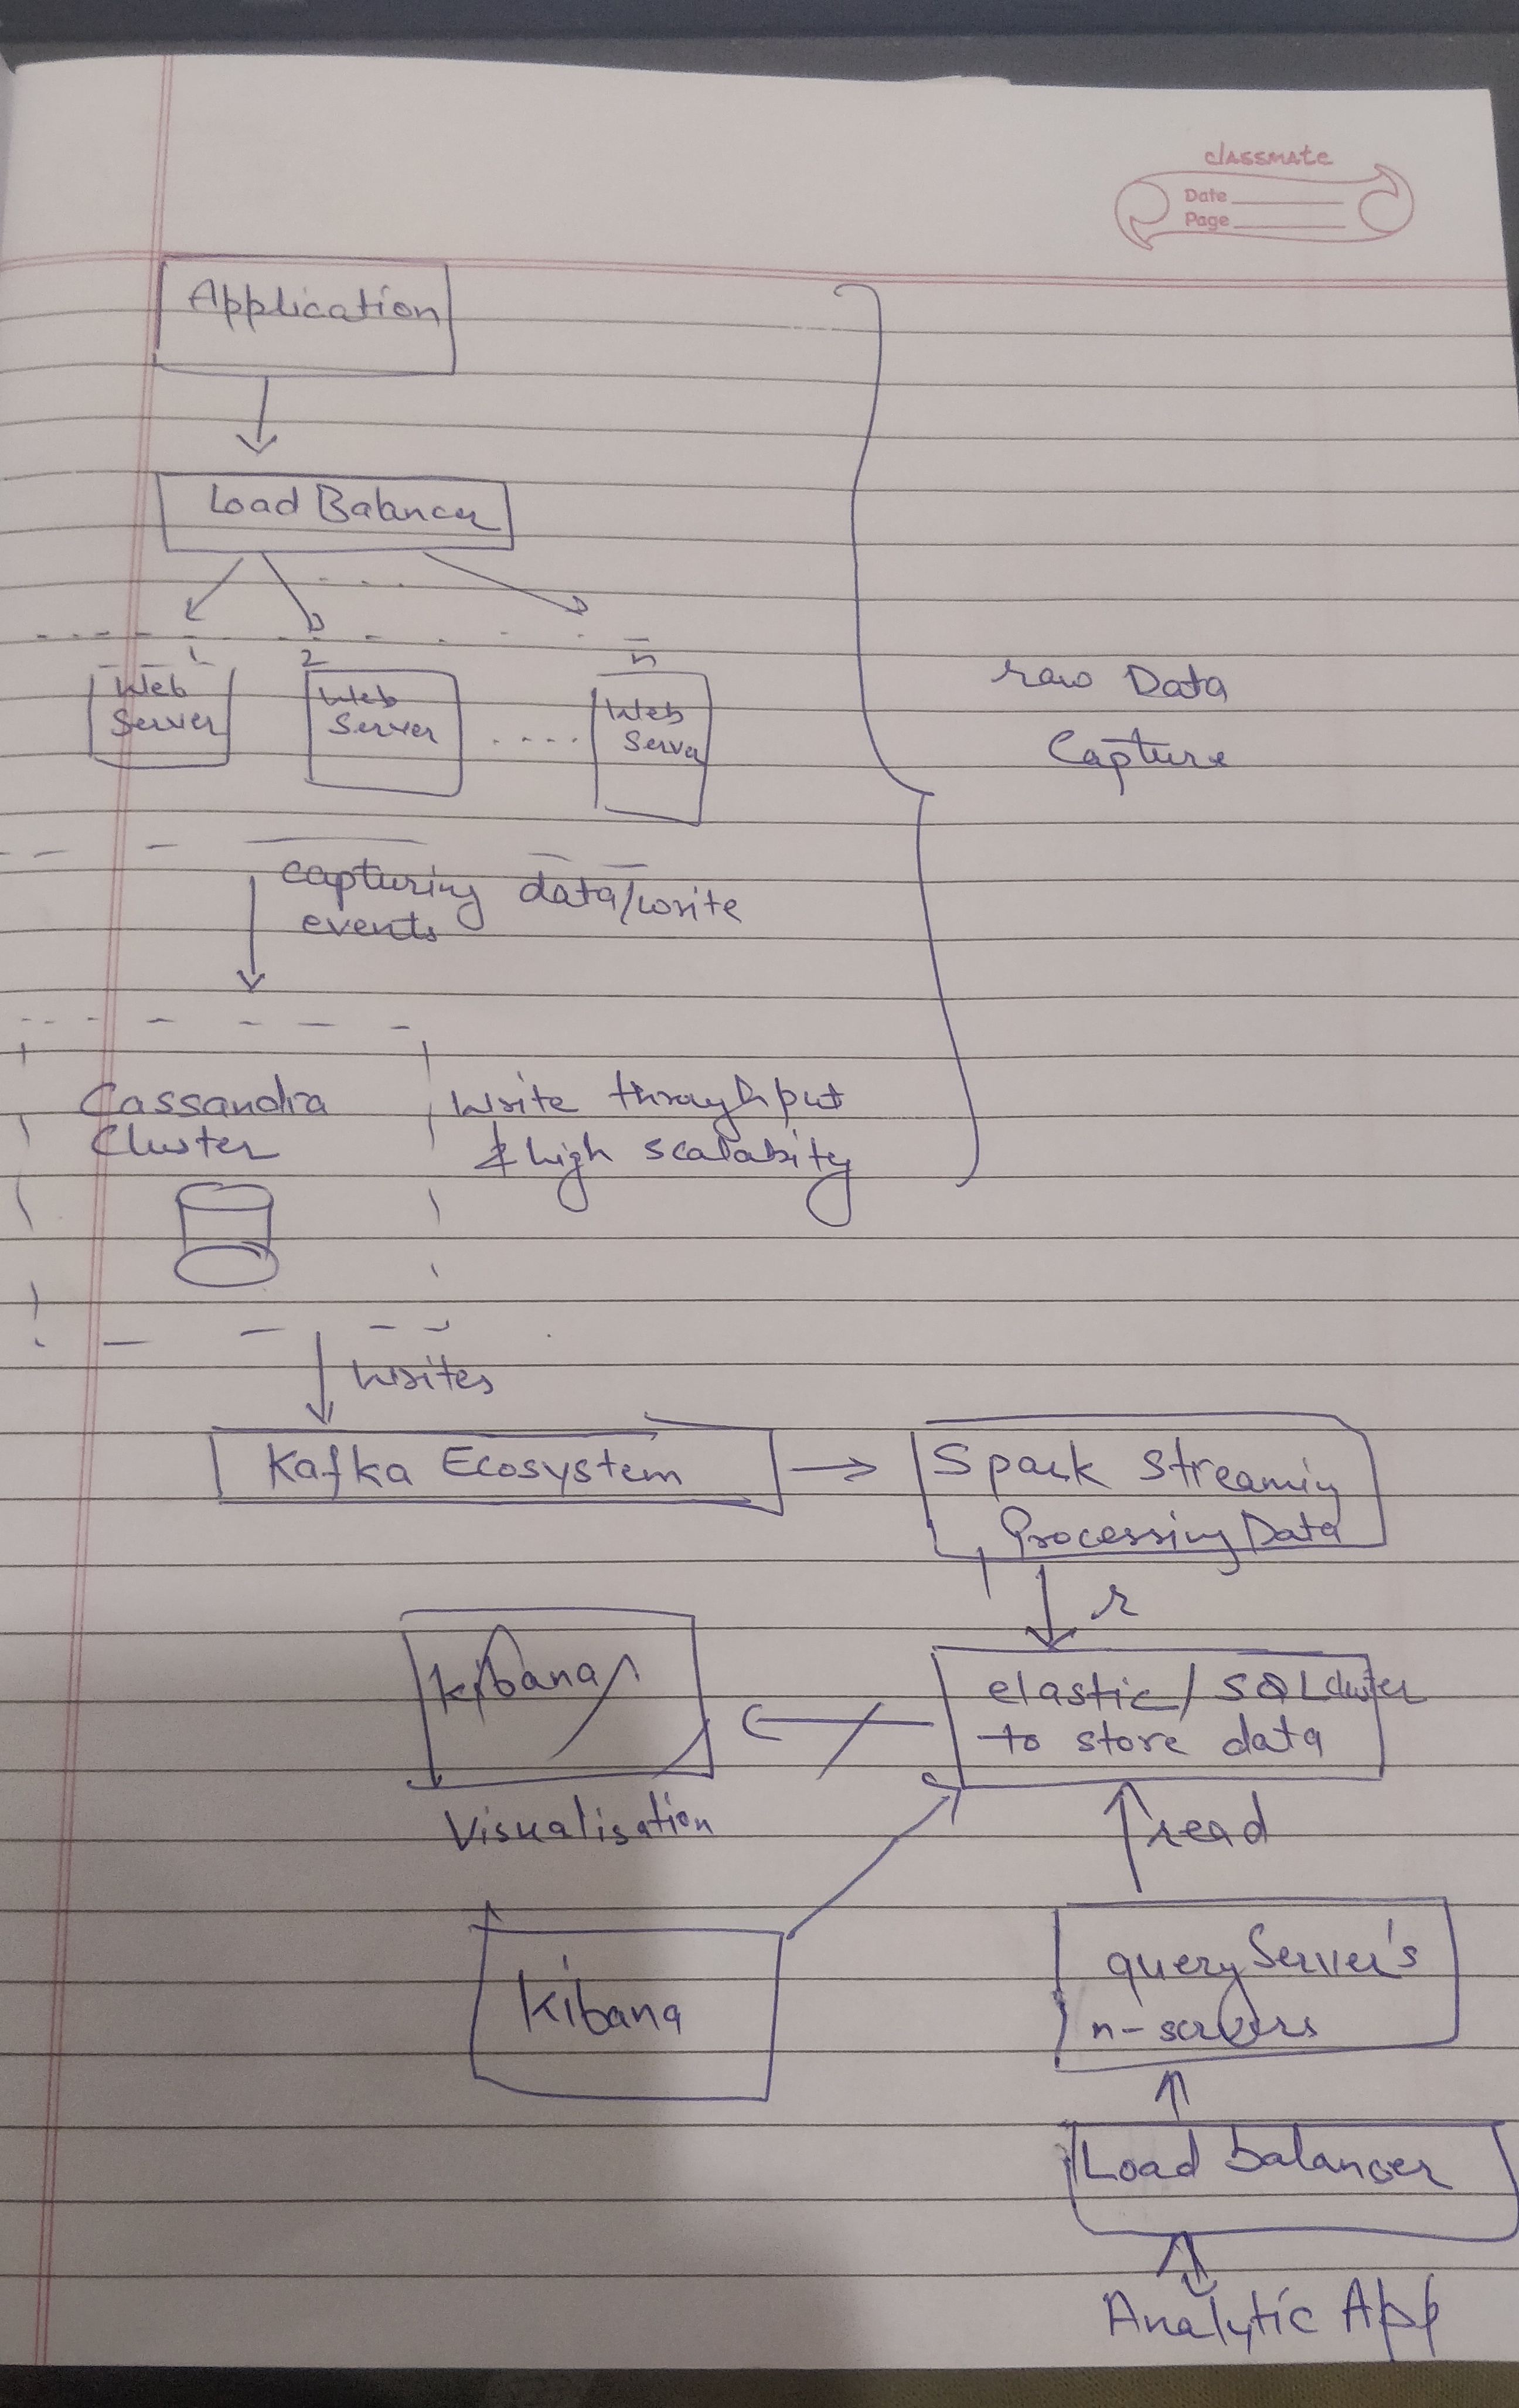 classmate
Date
Page
Application
Load Balancer
1 2 n
Web Server
Web Server
....
Web Server
raw Data
Capture
capturing data/write
events
Cassandra
Cluster
Write throughput
& high scalability
writes
Kafka Ecosystem
Spark Streaming
Processing Data
r
Kibana
elastic/SQL cluster
to store data
Visualisation
read
Kibana
query Server's
n-servers
Load balancer
Analytic App